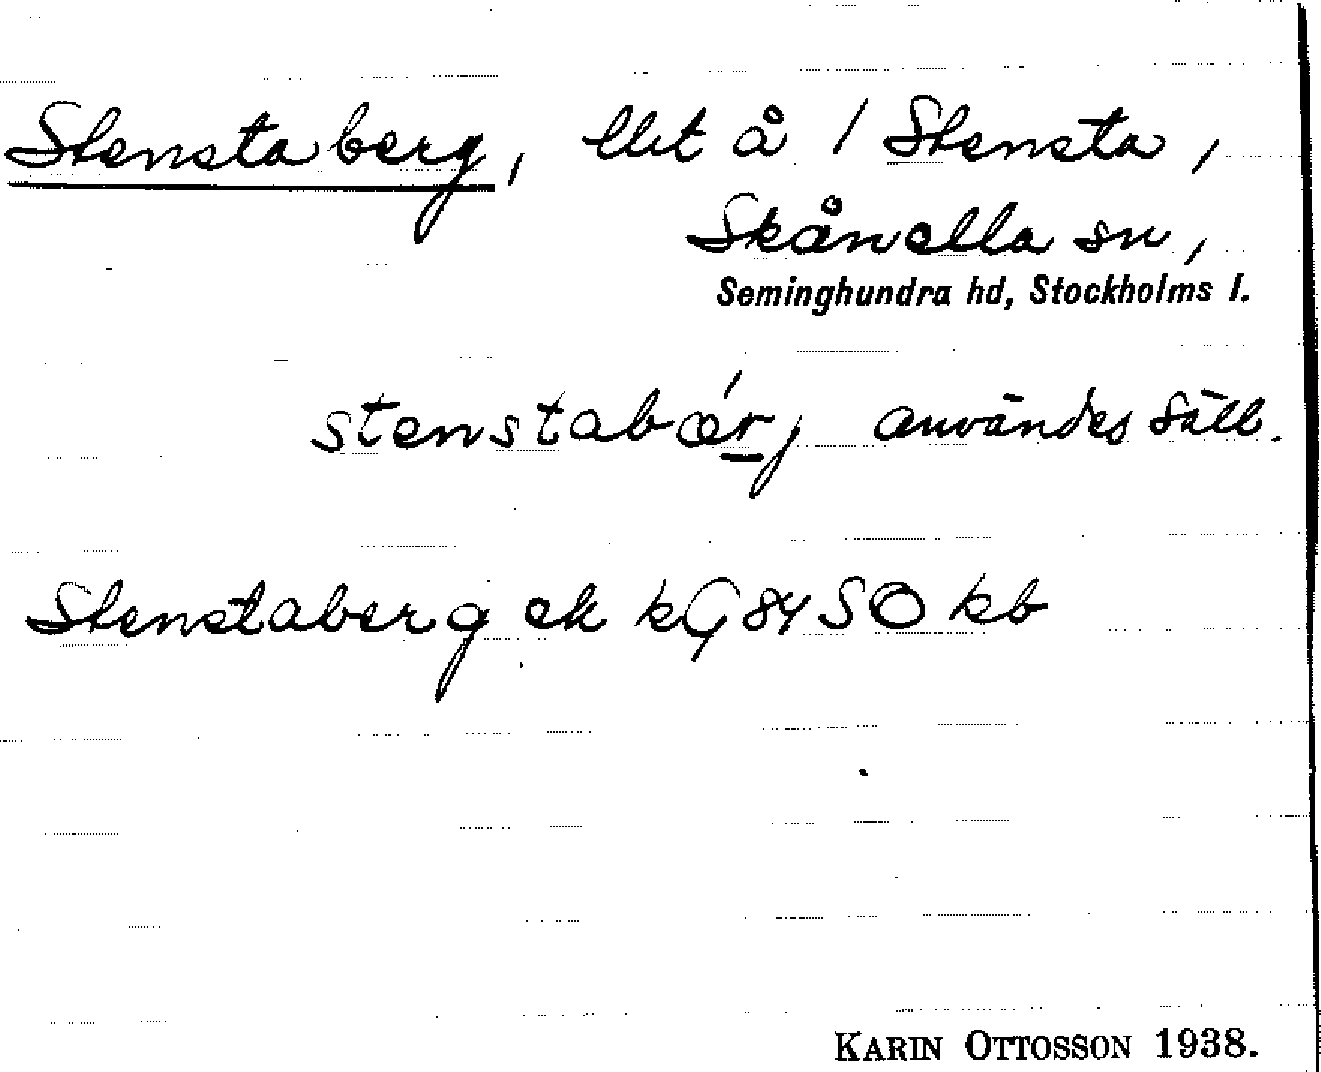 Stenstaberg, llet å / Stensta,
Skånella sn,
Seminghundra hd, Stockholms l.
stenstabǽrj användes säll.
Stenstaberg ek kG 84 SO kb
KARIN OTTOSSON 1938.